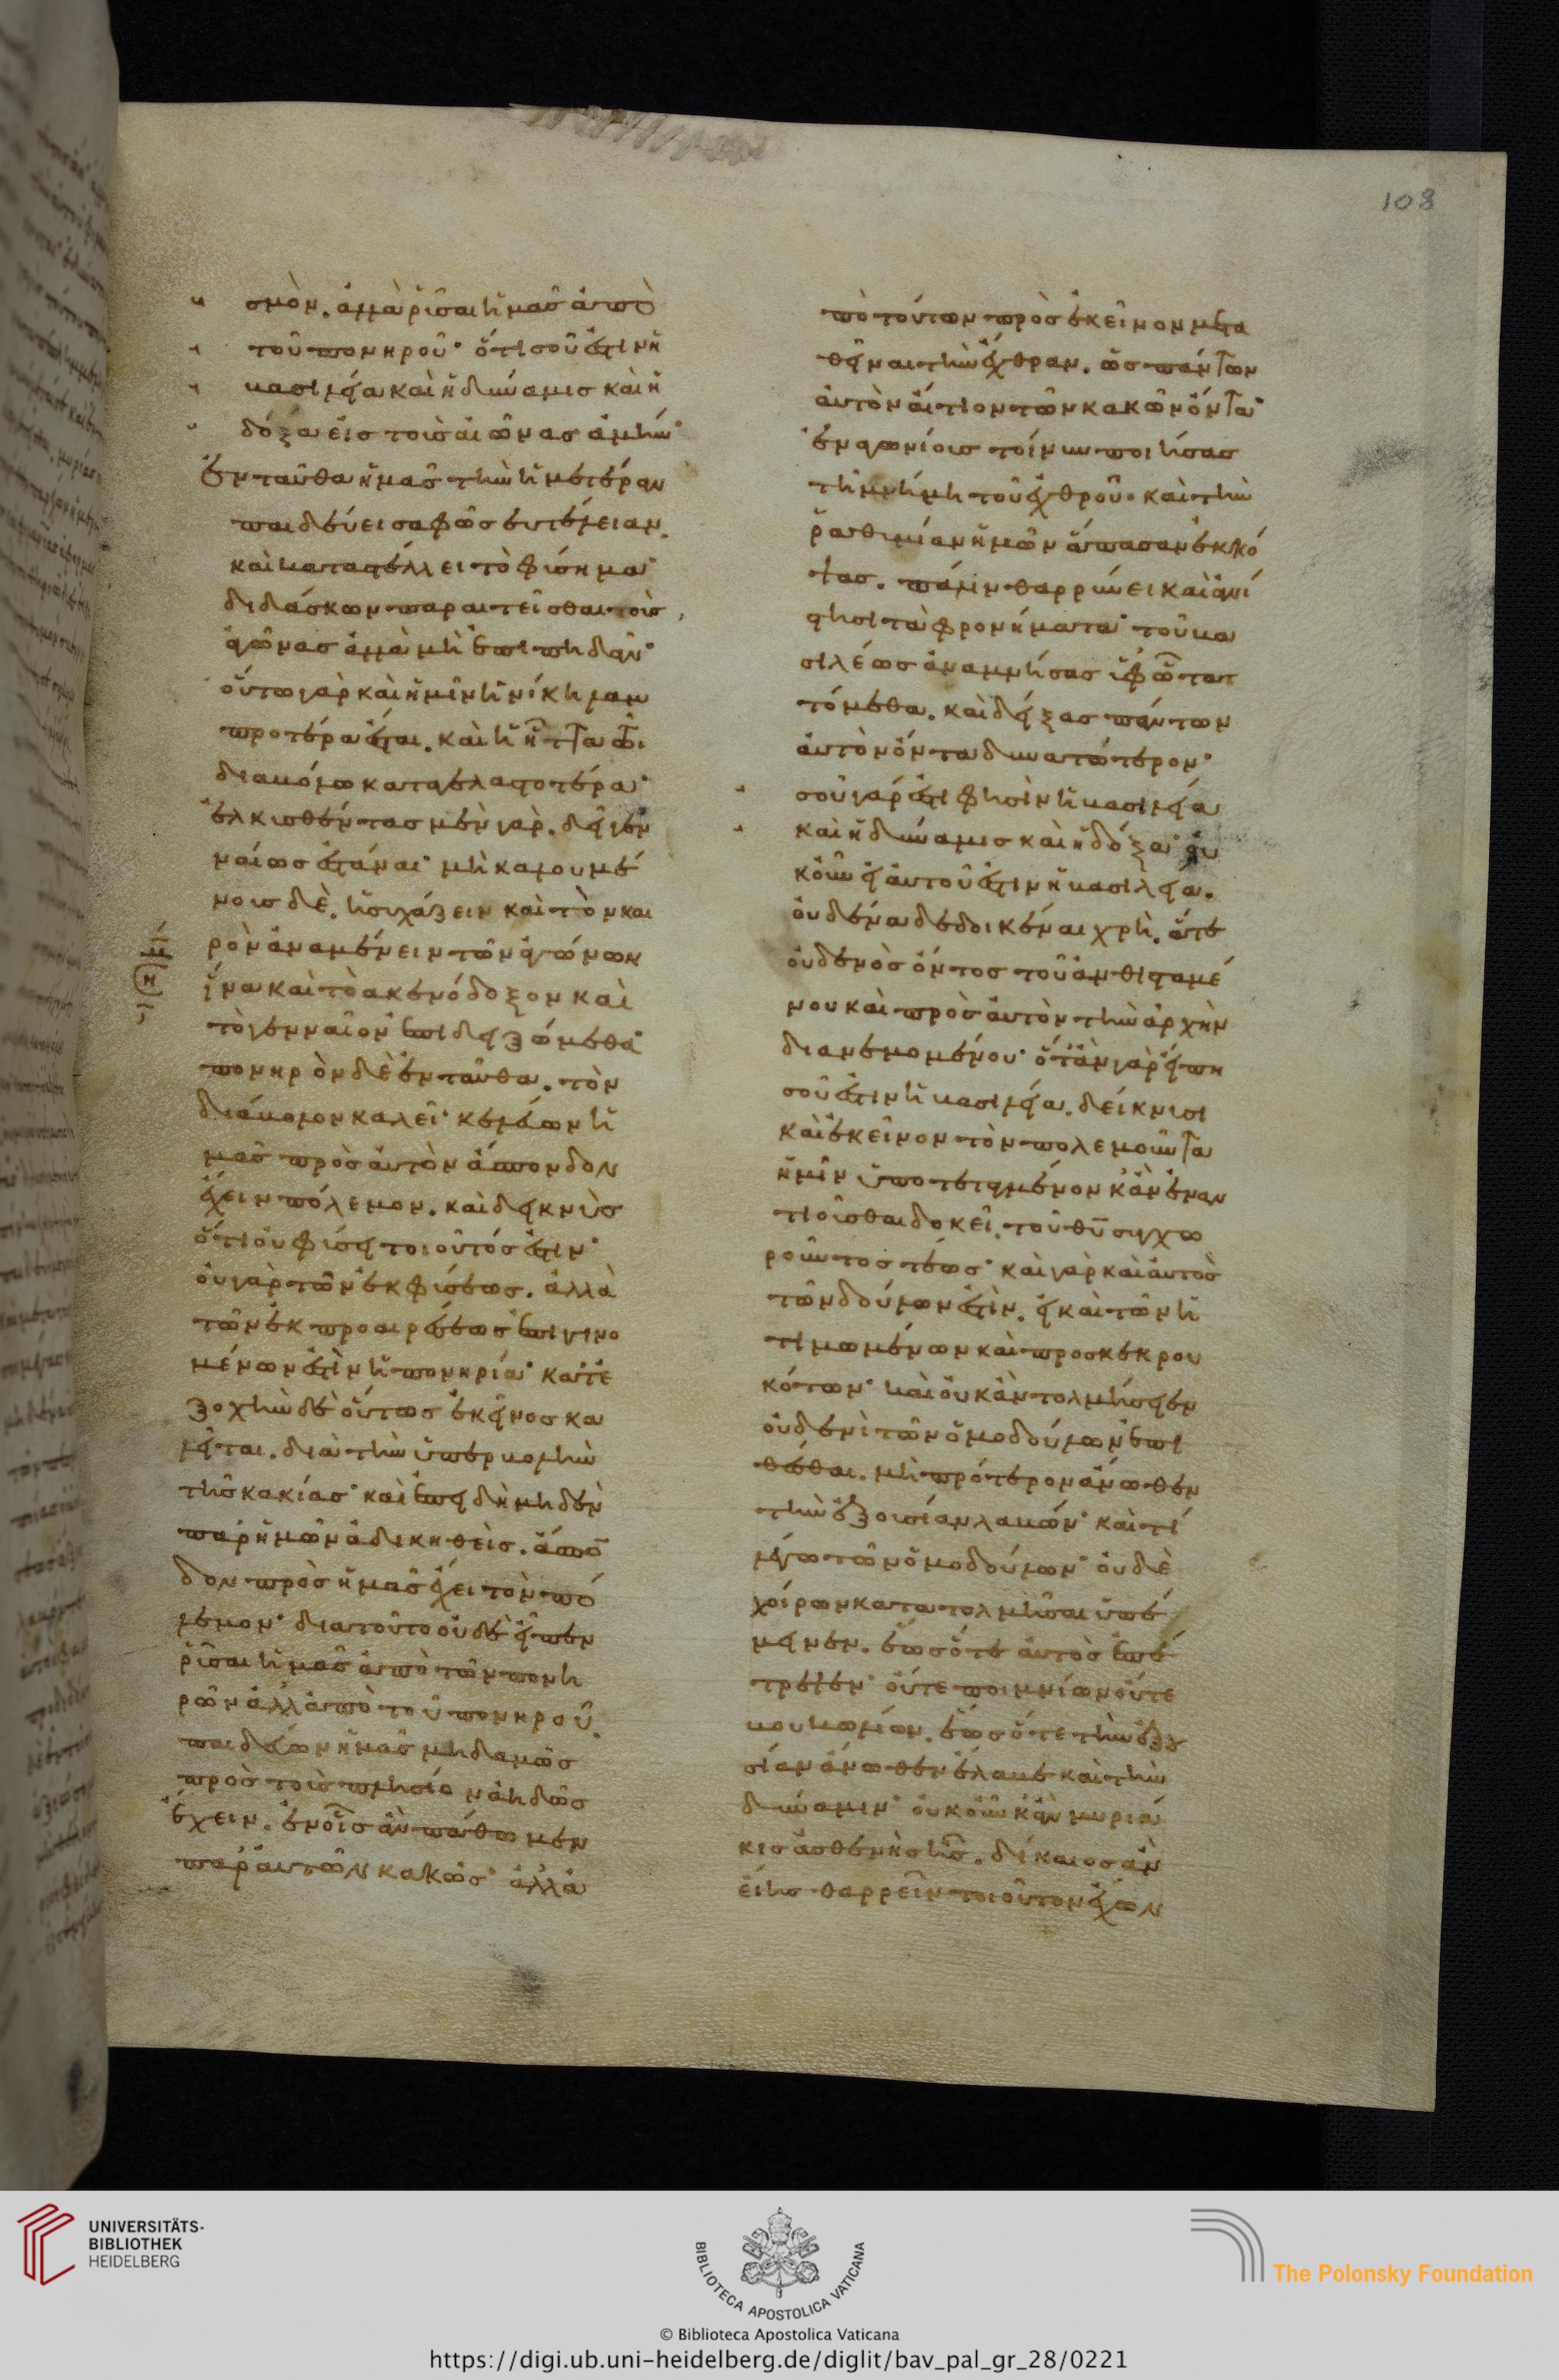 108
σμὸν. ἀλλὰ ῥῦσαι ἡμᾶς ἀπὸ
τοῦ πονηροῦ· ὅτι σοῦ ἐστιν ἡ
βασιλεία καὶ ἡ δύναμις καὶ ἡ
δόξα εἰς τοὺς αἰῶνας ἀμήν·
Ἐνταῦθα ἡμᾶς τὴν ἡμετέραν
παιδεύει σαφῶς εὐτέλειαν.
καὶ καταστέλλει τὸ φύσημα·
διδάσκων παραιτεῖσθαι τοὺς
ἀγῶνας ἀλλὰ μὴ ἐπιπηδᾶν·
οὕτω γὰρ καὶ ἡμῖν ἡ νίκη λαμ
προτέρα ἔσται. καὶ ἡ ἧττα τῶ
διαβόλω καταγελαστοτέρα·
ἑλκυσθέντας μὲν γὰρ. δεῖ γεν
ναίως ἑστάναι· μὴ καλουμέ
νους δὲ. ἡσυχάζειν καὶ τὸν και
ρὸν ἀναμένειν τῶν ἀγώνων
ἵνα καὶ τὸ ακενόδοξον καὶ
τὸ γενναῖον ἐπιδειξώμεθα·
πονηρὸν δὲ ἐνταῦθα. τὸν
διάβολον καλεῖ· κελεύων ἡ
μᾶς πρὸς αὐτὸν ἄσπονδον
ἔχειν πόλεμον. καὶ δεικνὺς
ὅτι οὐ φύσει τοιοῦτός ἐστιν·
οὐ γὰρ τῶν ἐκ φύσεως. ἀλλὰ
τῶν ἐκ προαιρέσεως ἐπιγινο
μένων ἐστὶν ἡ πονηρία· κατε
ξοχὴν δὲ οὕτως ἐκεῖνος κα
λεῖται. διὰ τὴν ὑπερβολὴν
τῆς κακίας· καὶ ἐπειδὴ μηδὲν
παρ' ἡμῶν ἀδικηθεὶς. ἄσπο
δον πρὸς ἡμᾶς ἔχει τὸν πό
λεμον· διατοῦτο οὐδὲ εἶπεν
ῥῦσαι ἡμᾶς ἀπὸ τῶν πονη
ρῶν ἀλλ' ἀπὸ τοῦ πονηροῦ.
παιδεύων ἡμᾶς μηδαμῶς
πρὸς τοὺς πλησίον ἀηδῶς
ἔχειν. ἐν οἷς ἂν πάθωμεν
παρ' αὐτῶν κακῶς· ἀλλὰ
πὸ τούτων πρὸς ἐκεῖνον μετα
θεῖναι τὴν ἔχθραν. ὡς πάντων
αὐτὸν αἴτιον τῶν κακῶν ὄντα·
ἐναγωνίους τοίνυν ποιήσας
τῆ μνήμη τοῦ ἐχθροῦ. καὶ τὴν
ῥαθυμίαν ἡμῶν ἅπασαν ἐκκό
ψας. πάλιν θαρρύνει καὶ ἀνί
στησι τὰ φρονήματα· τοῦ βα
σιλέως ἀναμνήσας ὑφ' ᾧ ταττ
τόμεθα. καὶ δείξας πάντων
αὐτὸν ὄντα δυνατώτερον·
σοῦ γάρ ἐστι φησὶν ἡ βασιλεία
καὶ ἡ δύναμις καὶ ἡ δόξα· οὐ
κοῦν εἰ αὐτοῦ ἐστιν ἡ βασιλεία.
οὐδένα δεδοικέναι χρὴ. ἅτε
οὐδενὸς ὄντος τοῦ ἀνθισταμέ
νου καὶ πρὸς αὐτὸν τὴν ἀρχὴν
διανεμομένου· ὅταν γὰρ εἴπη
σοῦ ἐστιν ἡ βασιλεία. δείκνυσι
καὶ ἐκεῖνον τὸν πολεμοῦντα
ἡμῖν ὑποτεταγμένον κἂν ἐναν
τιοῦσθαι δοκεῖ. τοῦ θυ συγχω
ροῦντος τέως· καὶ γὰρ καὶ αὐτὸς
τῶν δούλων ἐστὶν. εἰ καὶ τῶν ἠ
τιμωμένων καὶ προσκεκρου
κότων· καὶ οὐκ ἂν τολμήσειεν
οὐδενὶ τῶν ὁμοδούλων ἐπι
θέσθαι. μὴ πρότερον ἄνωθεν
τὴν ἐξουσίαν λαβών· καὶ τί
λέγω τῶν ὁμοδούλων· οὐδὲ
χοίρων κατατολμῆσαι ὑπέ
μεινεν. ἕως ὅτε αὐτὸς ἐπέ
τρεψεν· οὔτε ποιμνίων οὔτε
βουκολίων. ἕως ὅτε τὴν ἐξου
σίαν ἄνωθεν ἔλαβε καὶ τὴν
δύναμιν· οὐκοῦν κἂν μυριά
κις ἀσθενὴς ἦς. δίκαιος ἂν
εἴης θαρρεῖν τοιοῦτον ἔχων
UNIVERSITÄTS-
BIBLIOTHEK
HEIDELBERG
BIBLIOTECA APOSTOLICA VATICANA
The Polonsky Foundation
© Biblioteca Apostolica Vaticana
https://digi.ub.uni-heidelberg.de/diglit/bav_pal_gr_28/0221